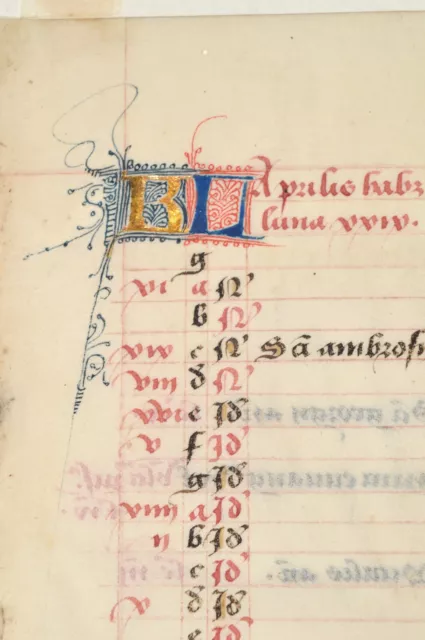 KL Aprilis habz
luna xxix.
g
xi a N
b N
xix c N Sa ambrosi
viii d N
xvi e Id
v f Id
g Id
xiii a Id
ii b Id
c Id
x d Id
e Id